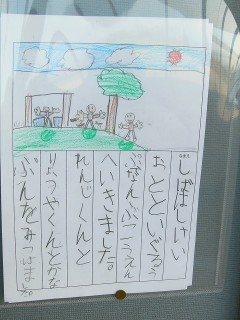 しばはしけい
おとといぐるう
ぷなんぷこうえん
へいきました。
れんじくんと
りょうやくんとかな
ぶんをみつけました。